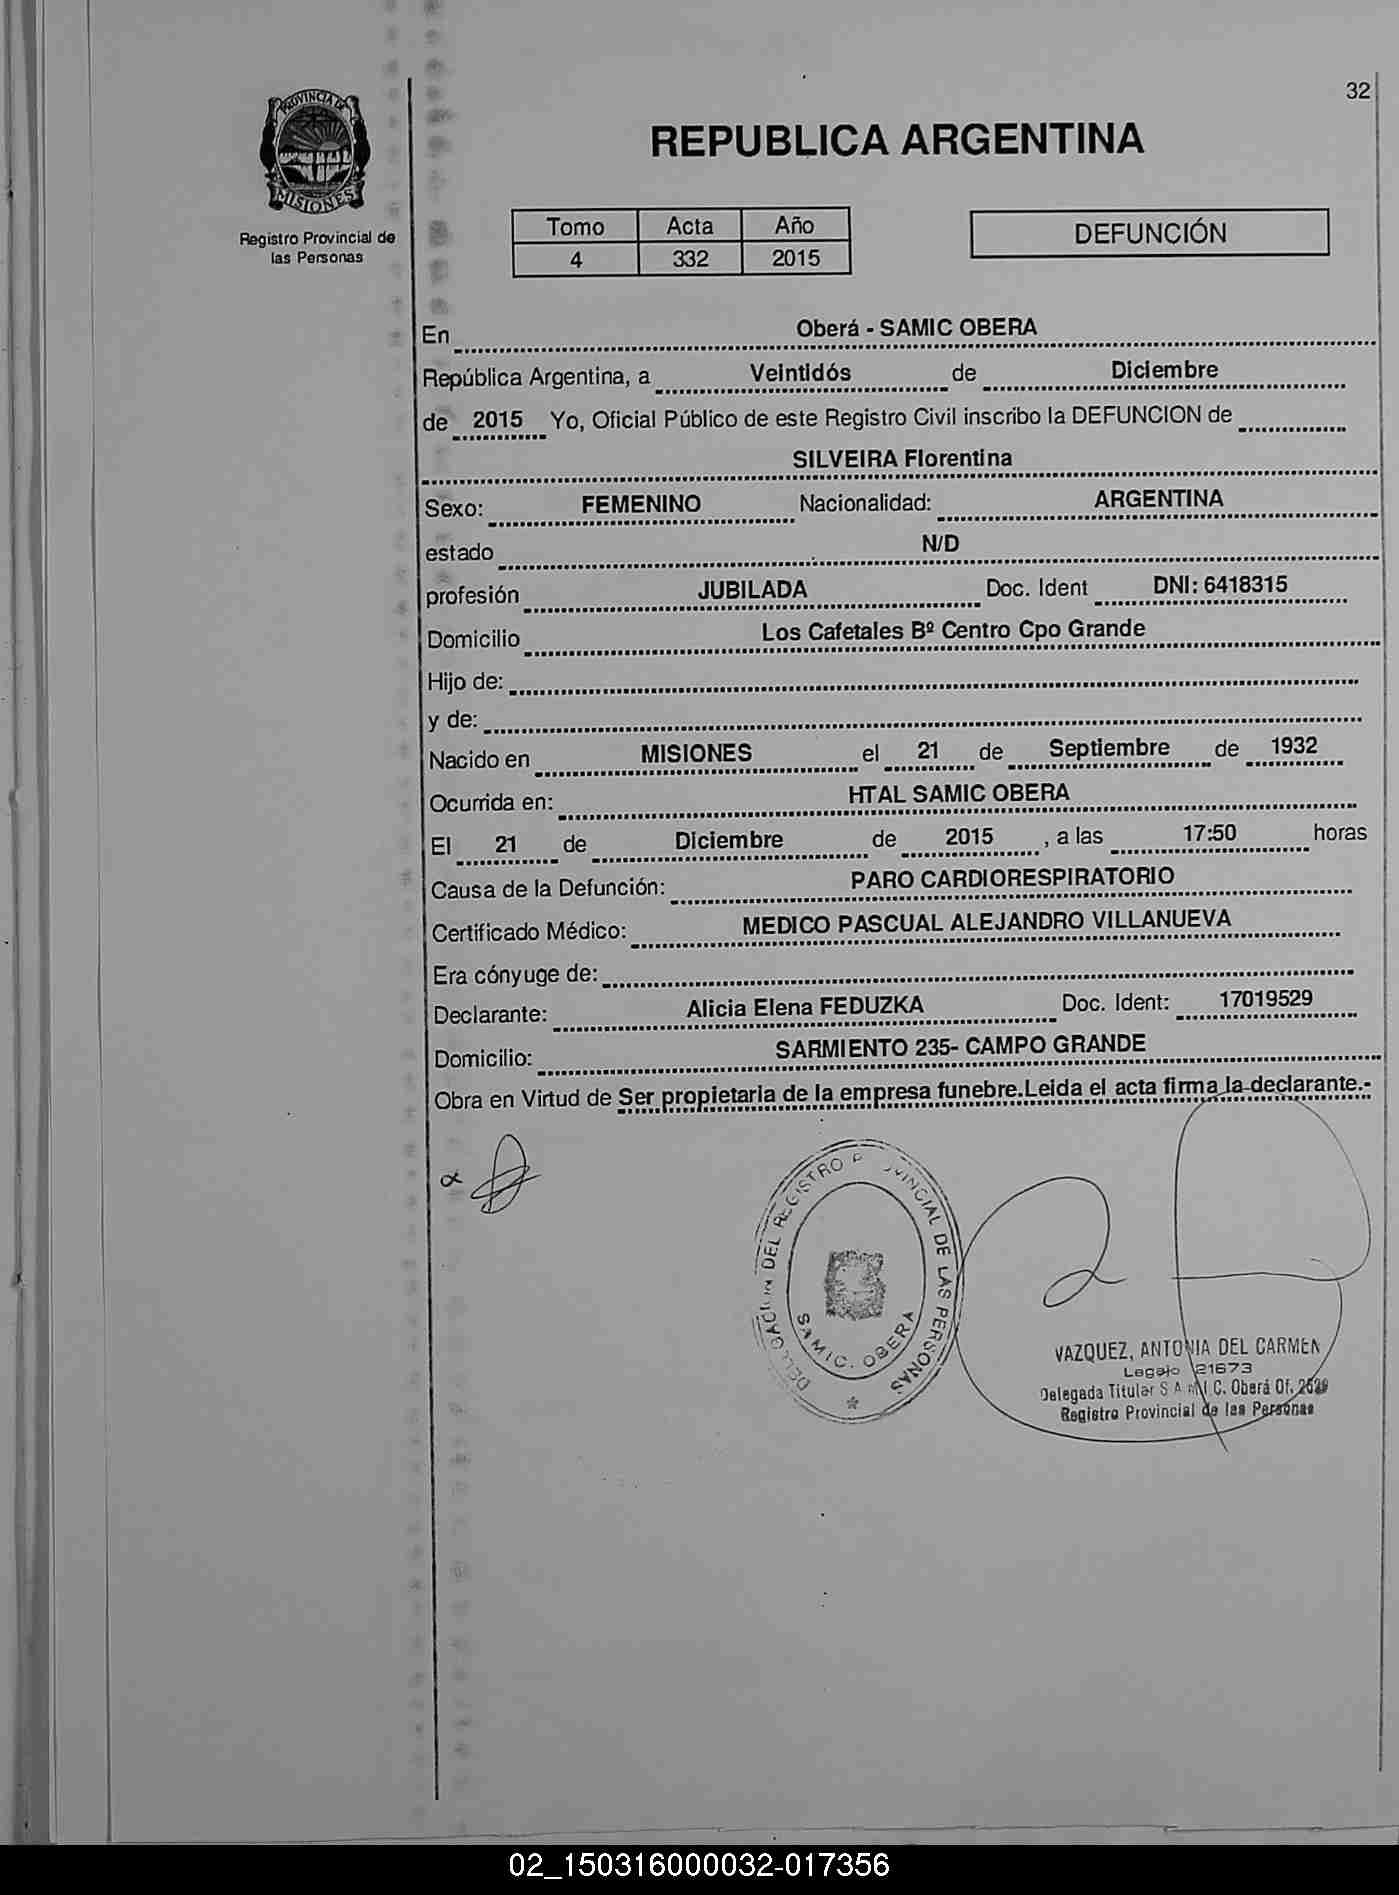 32
PROVINCIA DE
MISIONES
Registro Provincial de
las Personas
REPUBLICA ARGENTINA
Tomo Acta Año
4 332 2015
DEFUNCIÓN
En Oberá - SAMIC OBERA
República Argentina, a Veintidós de Diciembre
de 2015 Yo, Oficial Público de este Registro Civil inscribo la DEFUNCION de
SILVEIRA Florentina
Sexo: FEMENINO Nacionalidad: ARGENTINA
estado N/D
profesión JUBILADA Doc. Ident DNI: 6418315
Domicilio Los Cafetales Bº Centro Cpo Grande
Hijo de:
y de:
Nacido en MISIONES el 21 de Septiembre de 1932
Ocurrida en: HTAL SAMIC OBERA
El 21 de Diciembre de 2015 , a las 17:50 horas
Causa de la Defunción: PARO CARDIORESPIRATORIO
Certificado Médico: MEDICO PASCUAL ALEJANDRO VILLANUEVA
Era cónyuge de:
Declarante: Alicia Elena FEDUZKA Doc. Ident: 17019529
Domicilio: SARMIENTO 235- CAMPO GRANDE
Obra en Virtud de Ser propietaria de la empresa funebre.Leida el acta firma la declarante.-
DELEGACION DEL REGISTRO PROVINCIAL DE LAS PERSONAS
SAMIC. OBERA
VAZQUEZ, ANTONIA DEL CARMEN
Legajo 21673
Delegada Titular S.A.M.I.C. Oberá Of.
Registro Provincial de las Personas
02_150316000032-017356